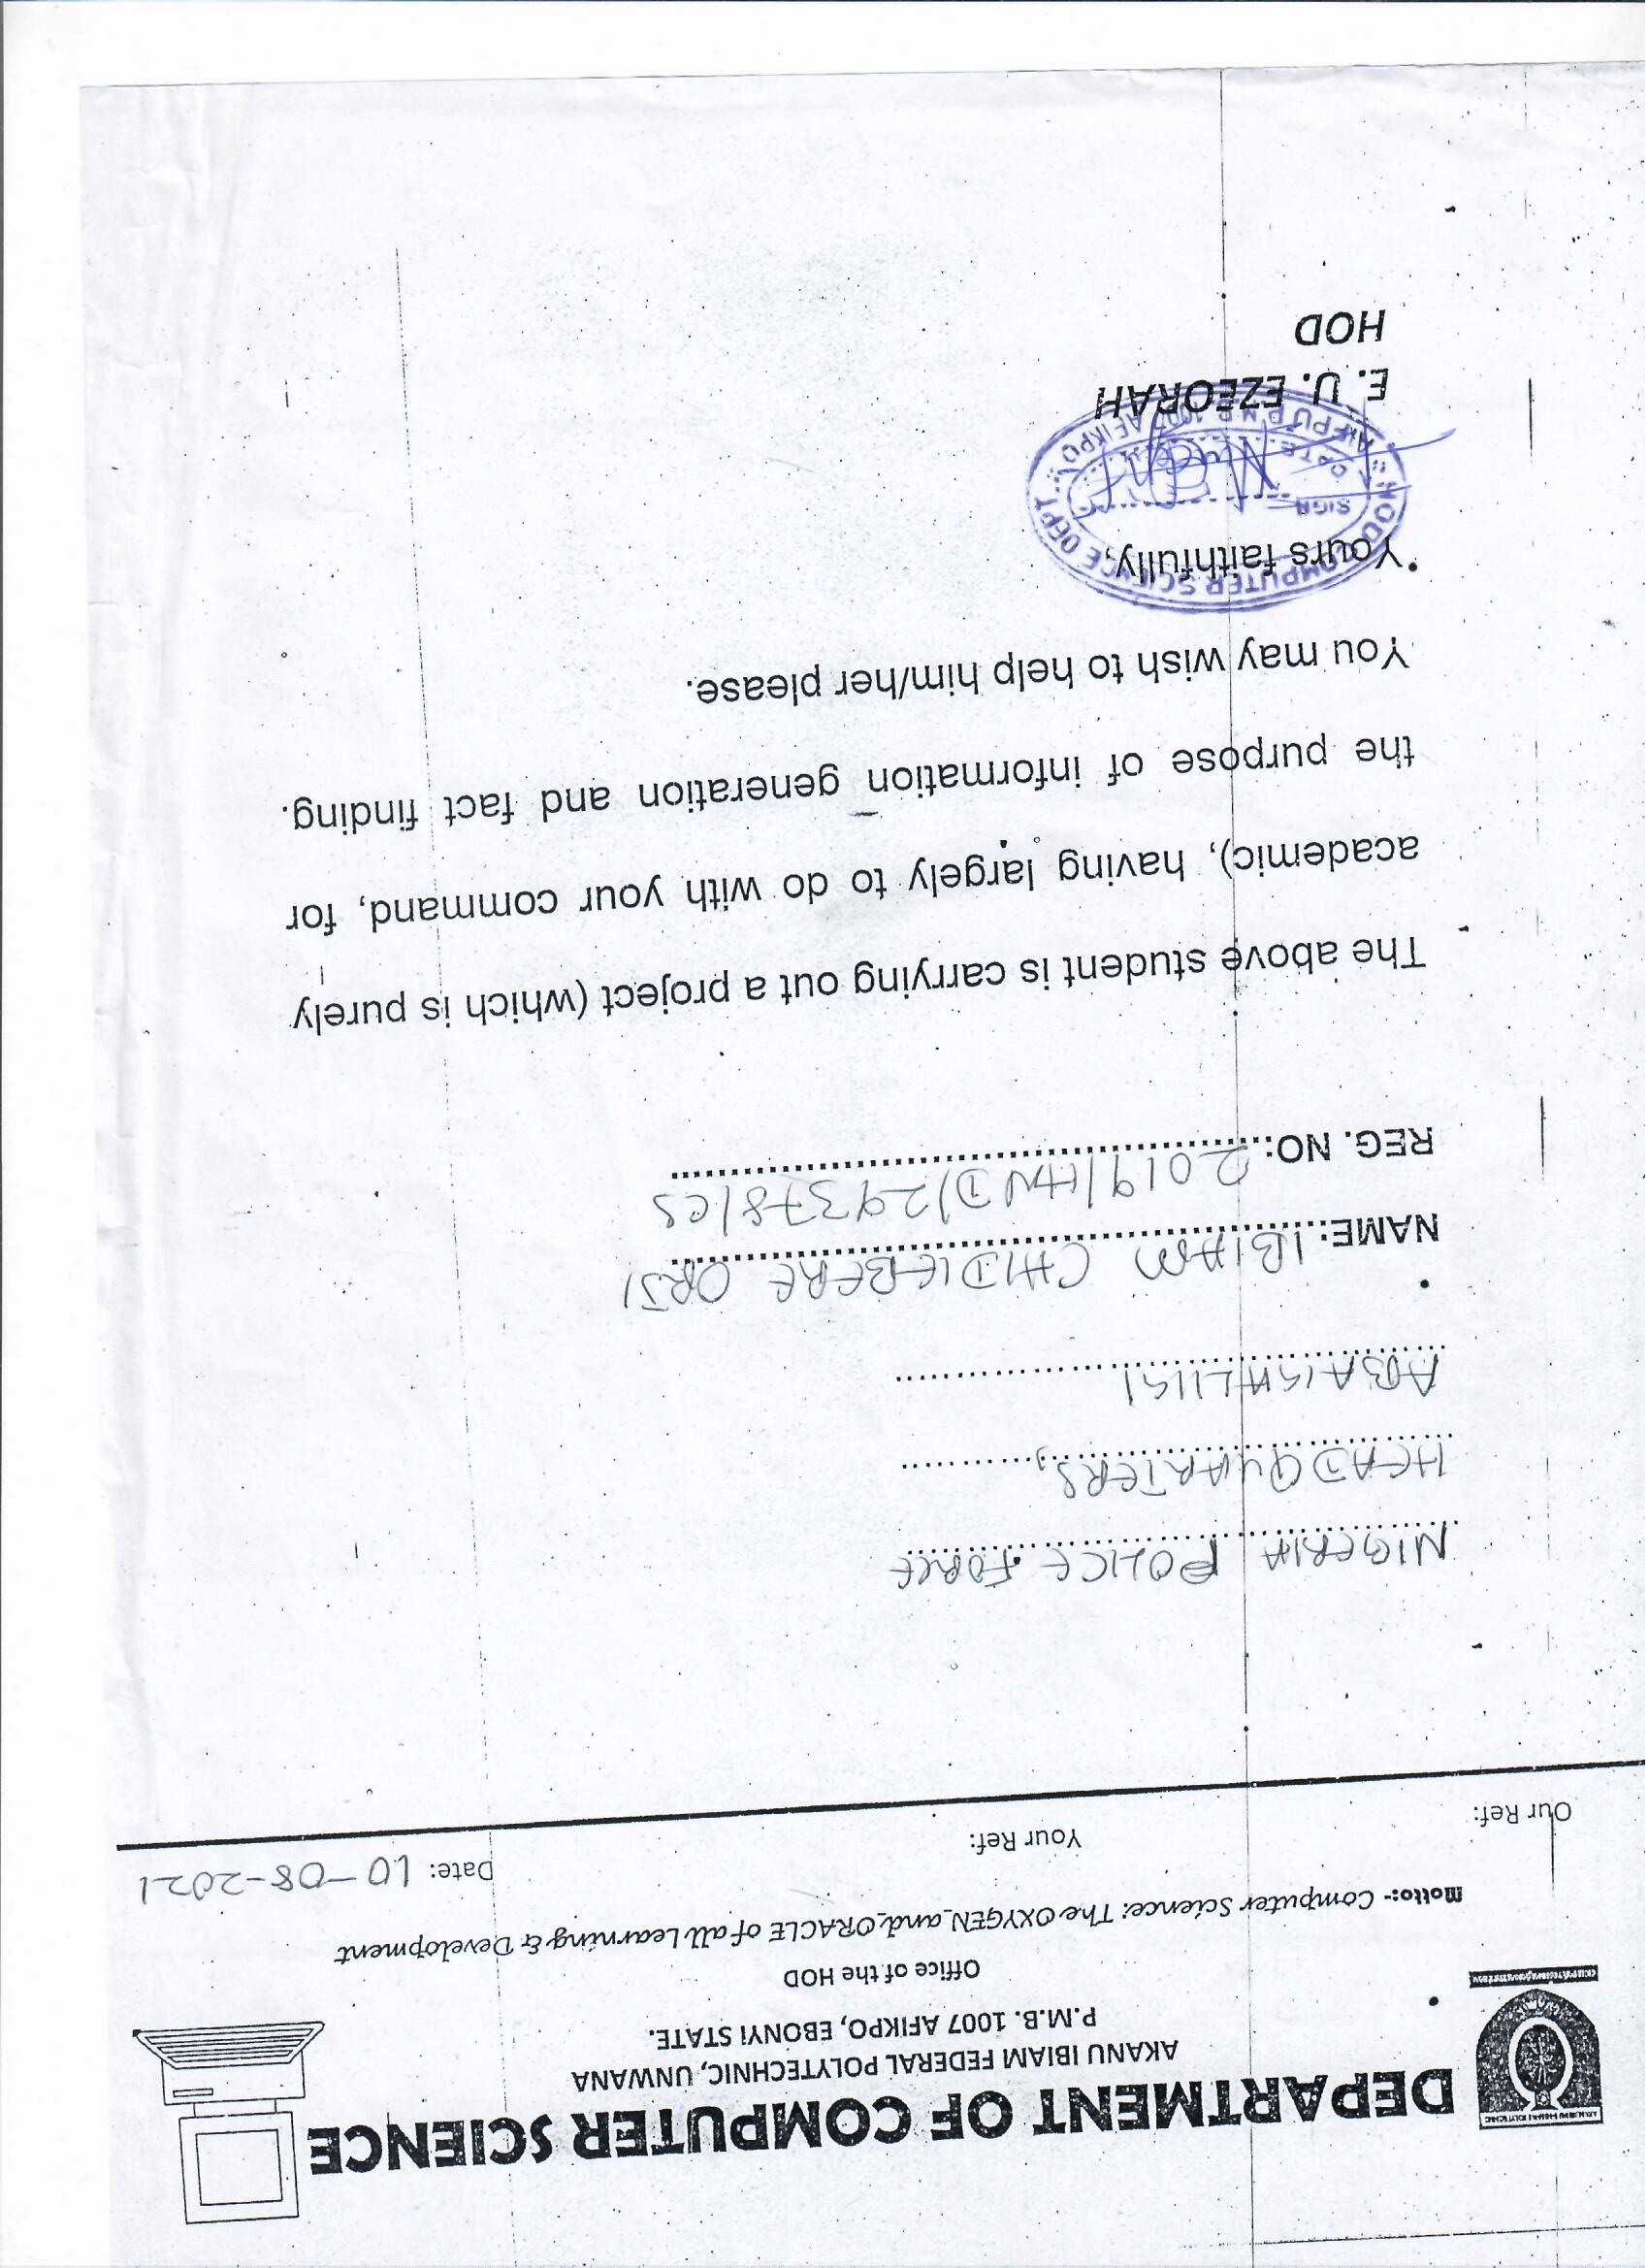 DEPARTMENT OF COMPUTER SCIENCE
AKANU IBIAM FEDERAL POLYTECHNIC, UNWANA
P.M.B. 1007 AFIKPO, EBONYI STATE.
Office of the HOD
Motto:- Computer Science: The OXYGEN and ORACLE of all Learning & Development
Date: 10-08-2021
Your Ref:
Our Ref:
NIGERIA POLICE FORCE
HEADQUARTERS,
ABAKALIKI
NAME: IBIAM CHIDIEBERE ORJI
REG. NO: 2019/HND/29378/CS
The above student is carrying out a project (which is purely
academic), having largely to do with your command, for
the purpose of information generation and fact finding.
You may wish to help him/her please.
Yours faithfully,
HOD COMPUTER SCIENCE DEPT.
SIGN
DATE
AIFPU P.M.B. 1007 AFIKPO
E. U. EZEORAH
HOD